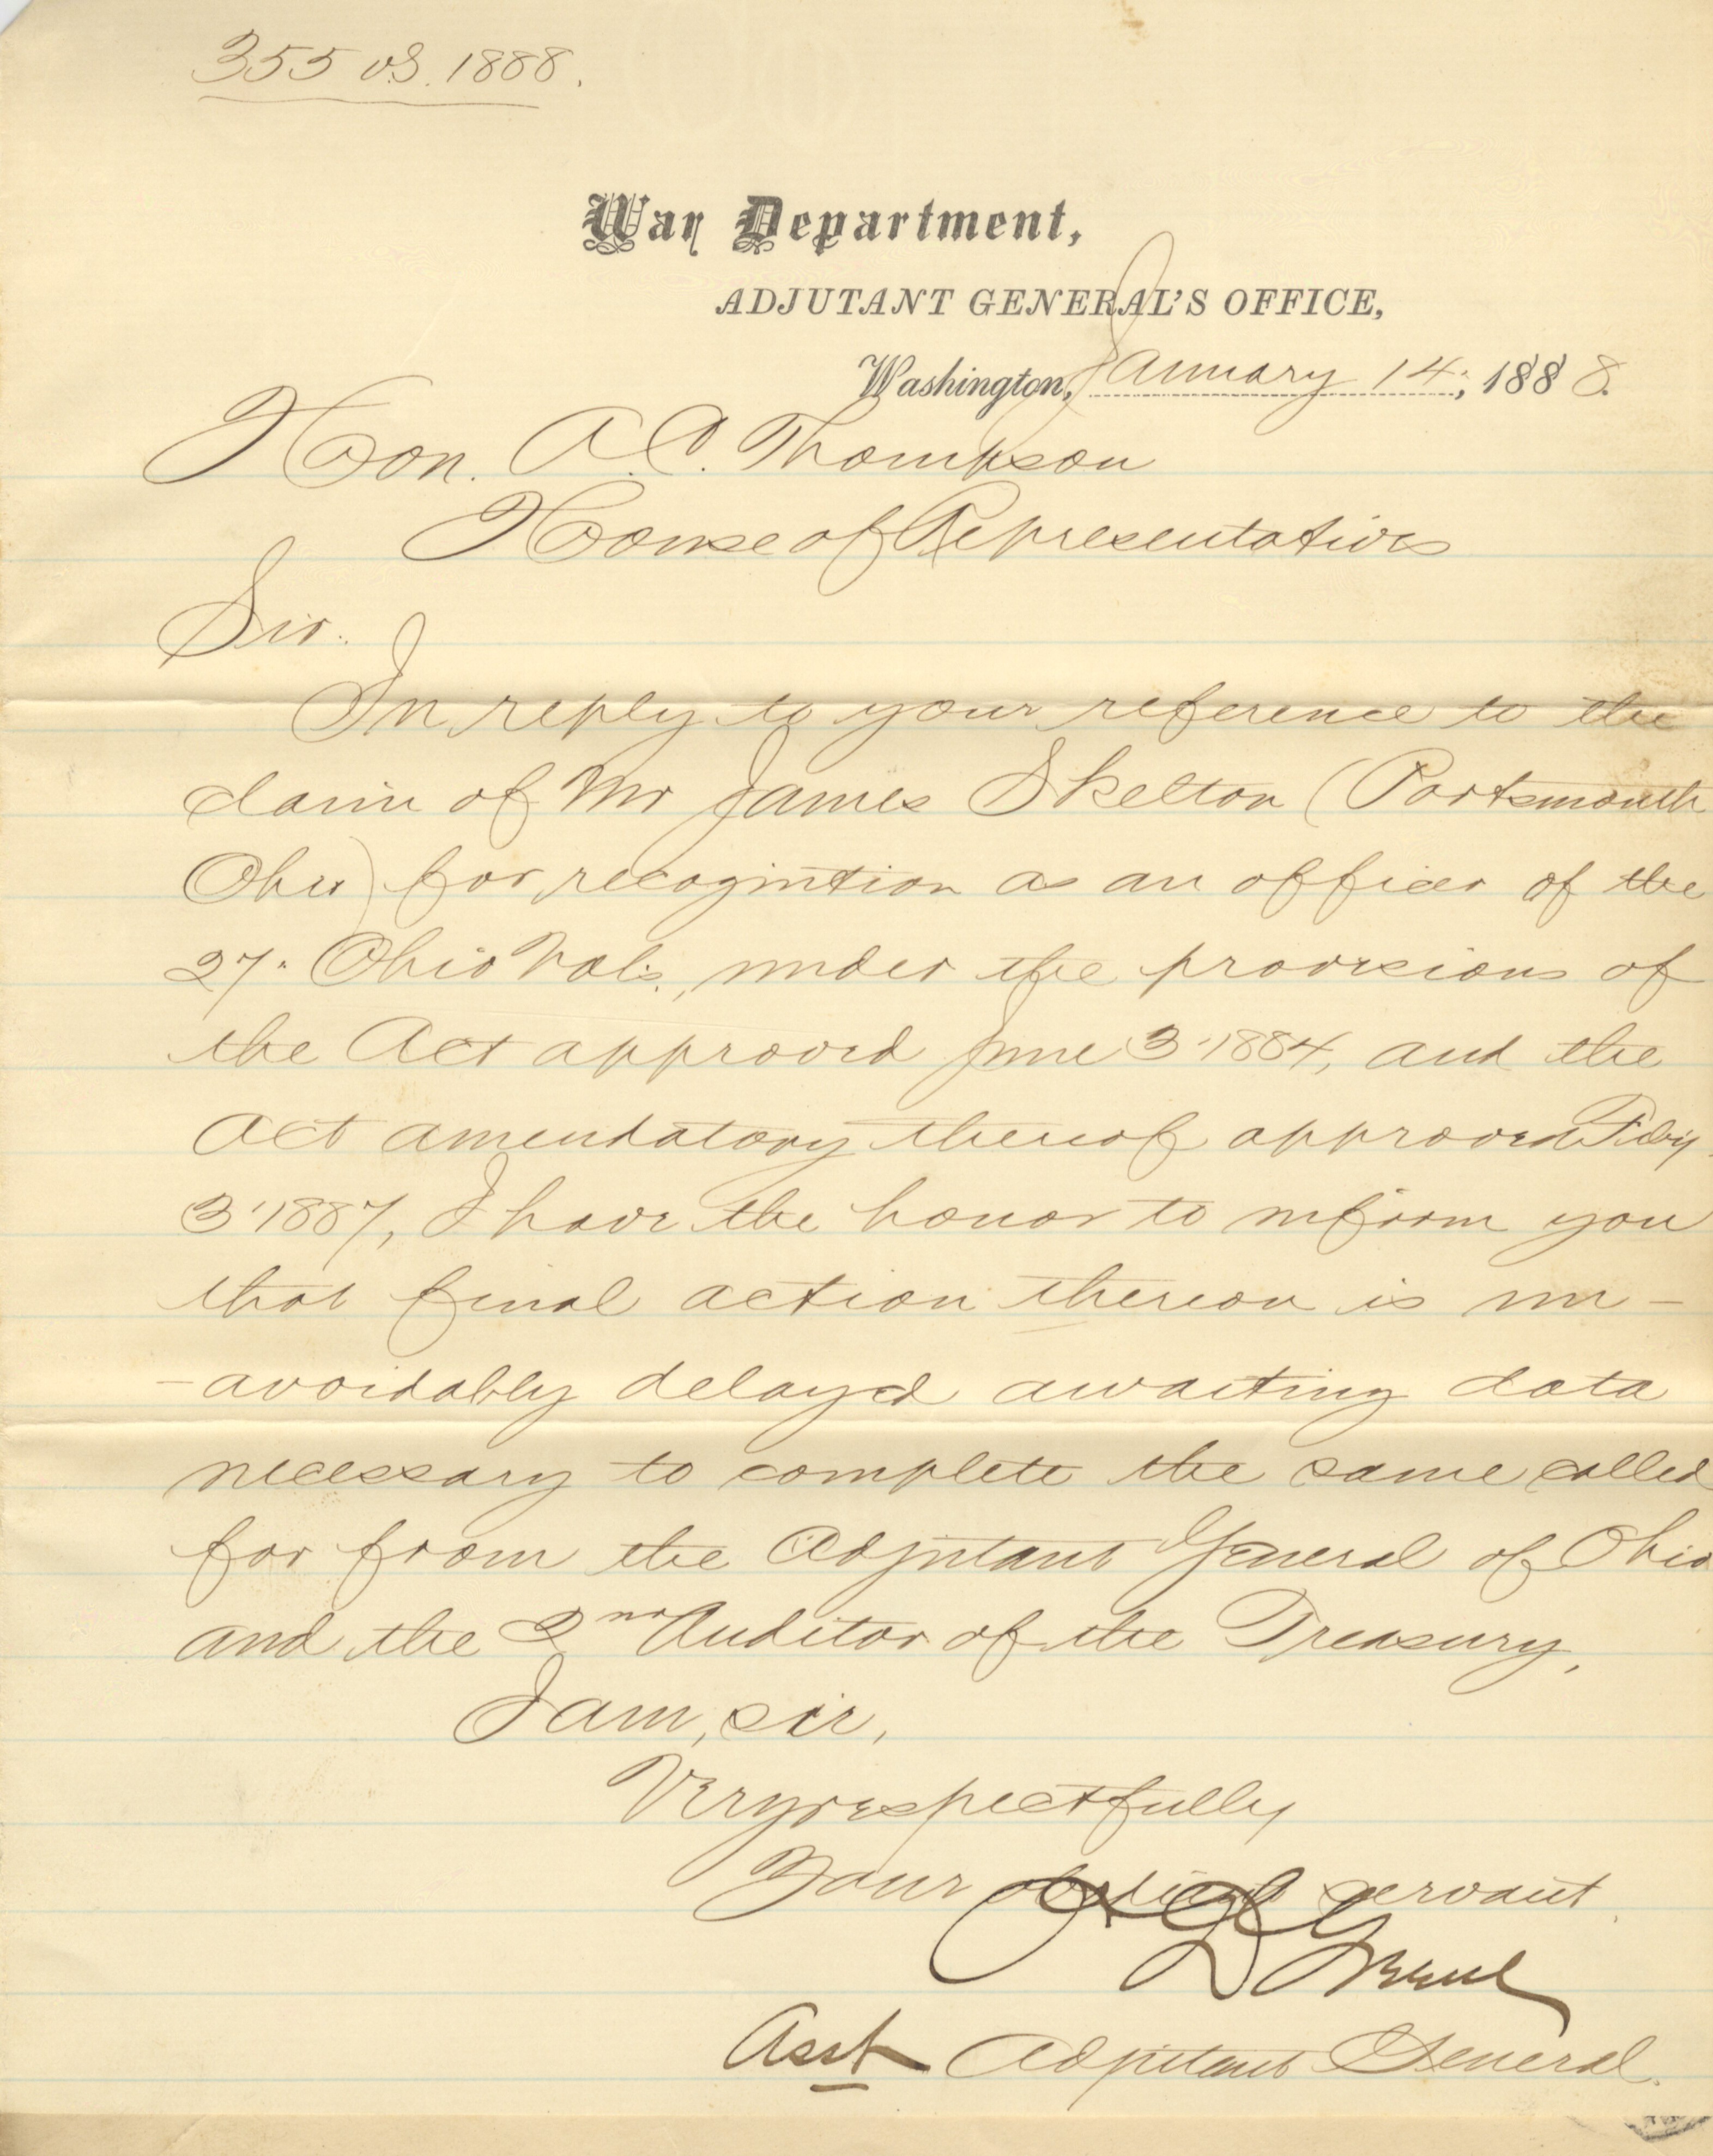 355 V.S. 1888.
War Department,
ADJUTANT GENERAL'S OFFICE,
Washington, January 14, 1888.
Hon. A. C. Thompson
House of Representatives
Sir:
In reply to your reference to the
claim of Mr James Skelton (Portsmouth
Ohio) for recognition as an officer of the
27" Ohio Vols., under the provisions of
the Act approved June 3' 1884, and the
Act amendatory thereof approved Feby
3' 1887, I have the honor to inform you
that final action thereon is un-
-avoidably delayed awaiting data
necessary to complete the same called
for from the Adjutant General of Ohio
and the 2nd Auditor of the Treasury.
I am, sir,
Very respectfully
Your obedient servant
Asst Adjutant General.